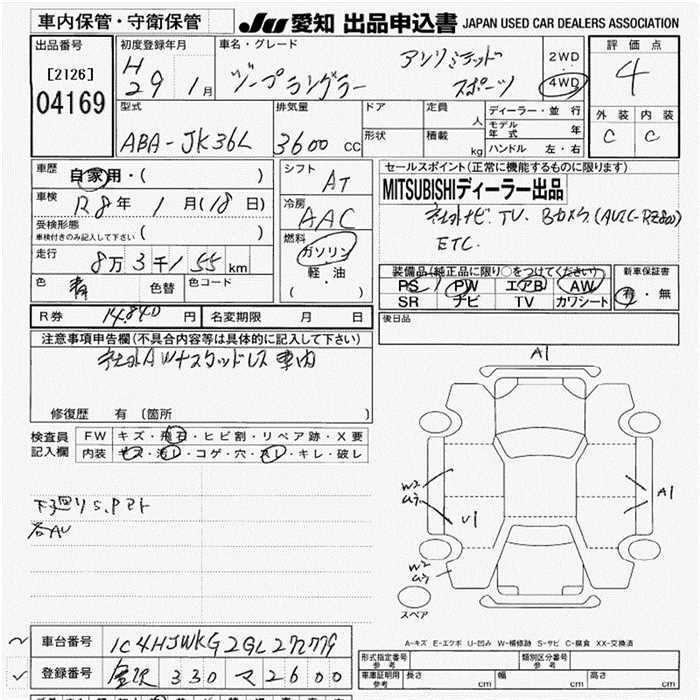 車内保管・守衛保管
JU 愛知 出品申込書 JAPAN USED CAR DEALERS ASSOCIATION
出品番号
[2126]
04169
初度登録年月
H 29 1月
車名・グレード
ジープラングラー
アンリミテッド
スポーツ
2WD
4WD
評価点
4
外装 内装
C C
型式
ABA-JK36L
排気量
3600 CC
ドア
形状
定員 人
積載 kg
ディーラー・並行
モデル年式 年
ハンドル 左・右
車歴 自家用・( )
車検 R8年 1月(18日)
受検形態
車検付きのみ記入して下さい ( )
走行 8万3千155km
色 青 色替 色コード
R券 14,840円 名変期限 月 日
シフト AT
冷房 AAC
燃料
ガソリン
軽・油
( )
セールスポイント(正常に機能するものに限ります)
MITSUBISHIディーラー出品
社外ナビ. TV. Bカメラ
ETC.
装備品(純正品に限り○をつけてください) 新車保証書
PS PW エアB AW
SR ナビ TV カワシート
有・無
後日品
注意事項申告欄(不具合内容等は具体的に記入して下さい)
社外AW
車内
修復歴 有 (箇所 )
検査員記入欄
FW キズ・飛石・ヒビ割・リペア跡・X要
内装 キズ・汚レ・コゲ・穴・スレ・キレ・破レ
下廻りS,Pマト
各AU
A1
W2
A1
U1
W2
スペア
A-キズ E-エクボ U-凹み W-補修跡 S-サビ C-腐食 XX-交換済
車台番号 1C4HJWKG2GL272779
登録番号 金沢 330 マ 2600
形式指定番号 参考
類別区分番号 参考
車庫証明用 参考 長さ cm 幅 cm 高さ cm